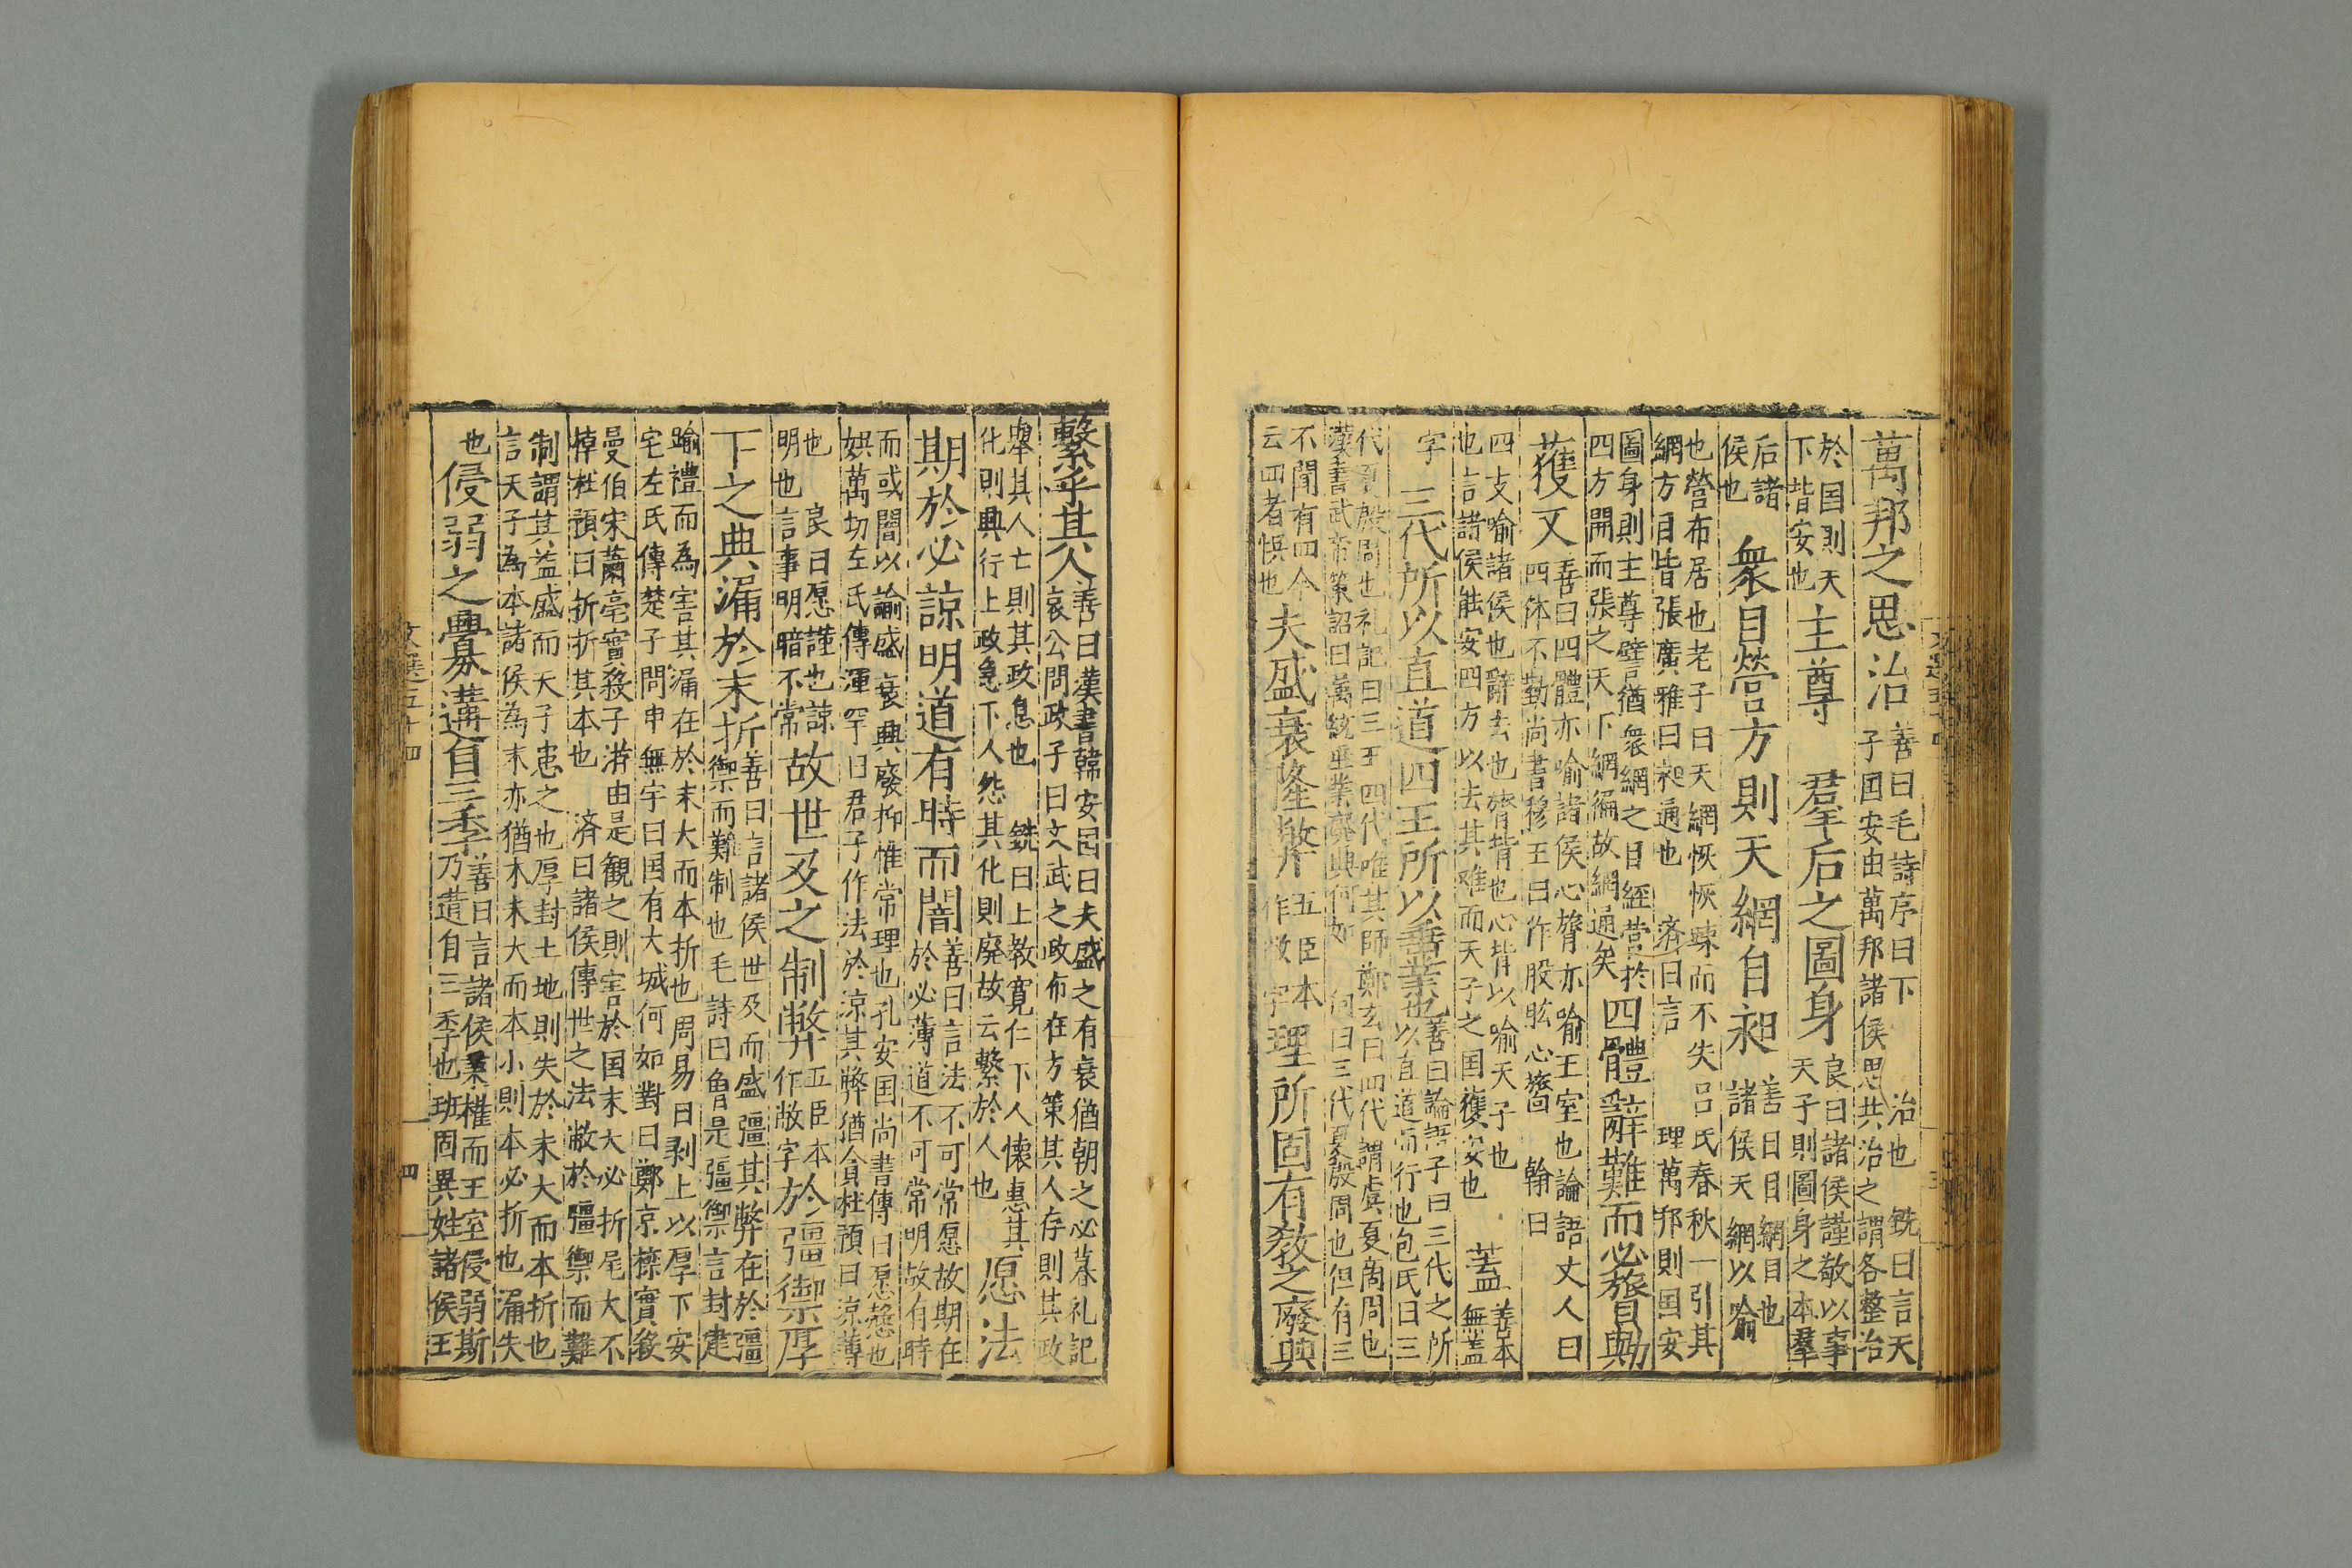 萬邦之思治善曰毛詩序曰下　治也　銑曰言天
子国安由萬邦諸侯思共治之謂各整治
於国則天
下皆安也主尊　羣后之圖身良曰諸侯謹敬以事
天子則圖身之本羣
后諸
侯也　衆目營方則天網自昶善曰目網目也
諸侯天網以喻
也營布居也老子曰天網恢恢踈而不失吕氏春秋一引其
網万目皆張廣雅曰昶通也　濟曰言　理萬邦則国安
圖身則主尊譬猶衆網之目經營於
四方開而張之天下網徧故網通矣四體辭難而心膂
獲乂善曰四體亦喻諸侯心膂亦喻王室也論語丈人曰
四体不勤尚書穆王曰作股肱心膂　翰曰
四支喻諸侯也辭去也膂背也心背以喻天子也
也言諸侯能安四方以去其难而天子之国獲安也　蓋善本
無蓋
字　三代所以直道四王所以善業也善曰論語子曰三代之所
以直道而行也包氏曰三
代夏殷周也礼記曰三王四代唯其師鄭玄曰四代謂虞夏商周也
漢書武帝策詔曰萬統垂業廢興何如　向曰三代夏殷周也但有三
不聞有四今
云四者悮也夫盛衰隆獘五臣本
作敝字理所固有敎之廢興
繫乎其人善曰漢書韓安国曰夫盛之有衰猶朝之必暮礼記
哀公問政子曰文武之政布在方策其人存則其政
舉其人亡則其政息也　銑曰上教寛仁下人懐惠其
化則興行上政急下人怨其化則廢故云繫於人也　愿法
期於必諒明道有時而闇善曰言法不可常愿故期在
於必薄道不可常明故有時
而或闇以論盛衰興廢抑惟常理也孔安国尚書傳曰愿慤也
娯萬切左氏傳渾罕曰君子作法於涼其弊猶貪杜預曰涼薄
也　良曰愿謹也諒
明也言事明暗不常故世及之制弊五臣本
作敝字於彊禦厚
下之典漏於末折善曰言諸侯世及而盛彊其弊在於彊
禦而難制也毛詩曰魯是彊禦言封建
踰禮而為害其漏在於末大而本折也周易曰剥上以厚下安
宅左氏傳楚子問申無宇曰国有大城何如對曰鄭京櫟實殺
曼伯宋蕭亳實殺子游由是観之則害於国末大必折尾大不
掉杜預曰折折其本也　濟曰諸侯傳世之法敝於彊禦而難
制謂其益盛而天子患之也厚封土地則失於末大而本折也
言天子為本諸侯為末亦猶木末大而本小則本必折也漏失
也侵弱之舋遘自三季善曰言諸侯秉權而王室侵弱斯
乃遘自三季也班固異姓諸侯王
四